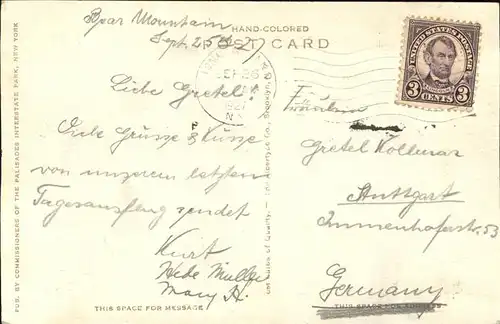 Bear Mountain
Sept. 25
HAND-COLORED
POST CARD
SEP 26
1927
N.Y.
UNITED STATES POSTAGE
LINCOLN
3 CENTS 3
Liebe Gretel!
Viele Grüsse & Küsse
von unserem letzten
Tagesausflug sendet
Kurt
Hede Müller
Mary H.
THIS SPACE FOR MESSAGE
Fräulein
Gretel Kollmar
Stuttgart
Immenhoferstr. 53
Germany
THIS SPACE FOR ADDRESS
PUB. BY COMMISSIONERS OF THE PALISADES INTERSTATE PARK, NEW YORK
of Quality. — The Albertype Co., Brooklyn, N.Y.